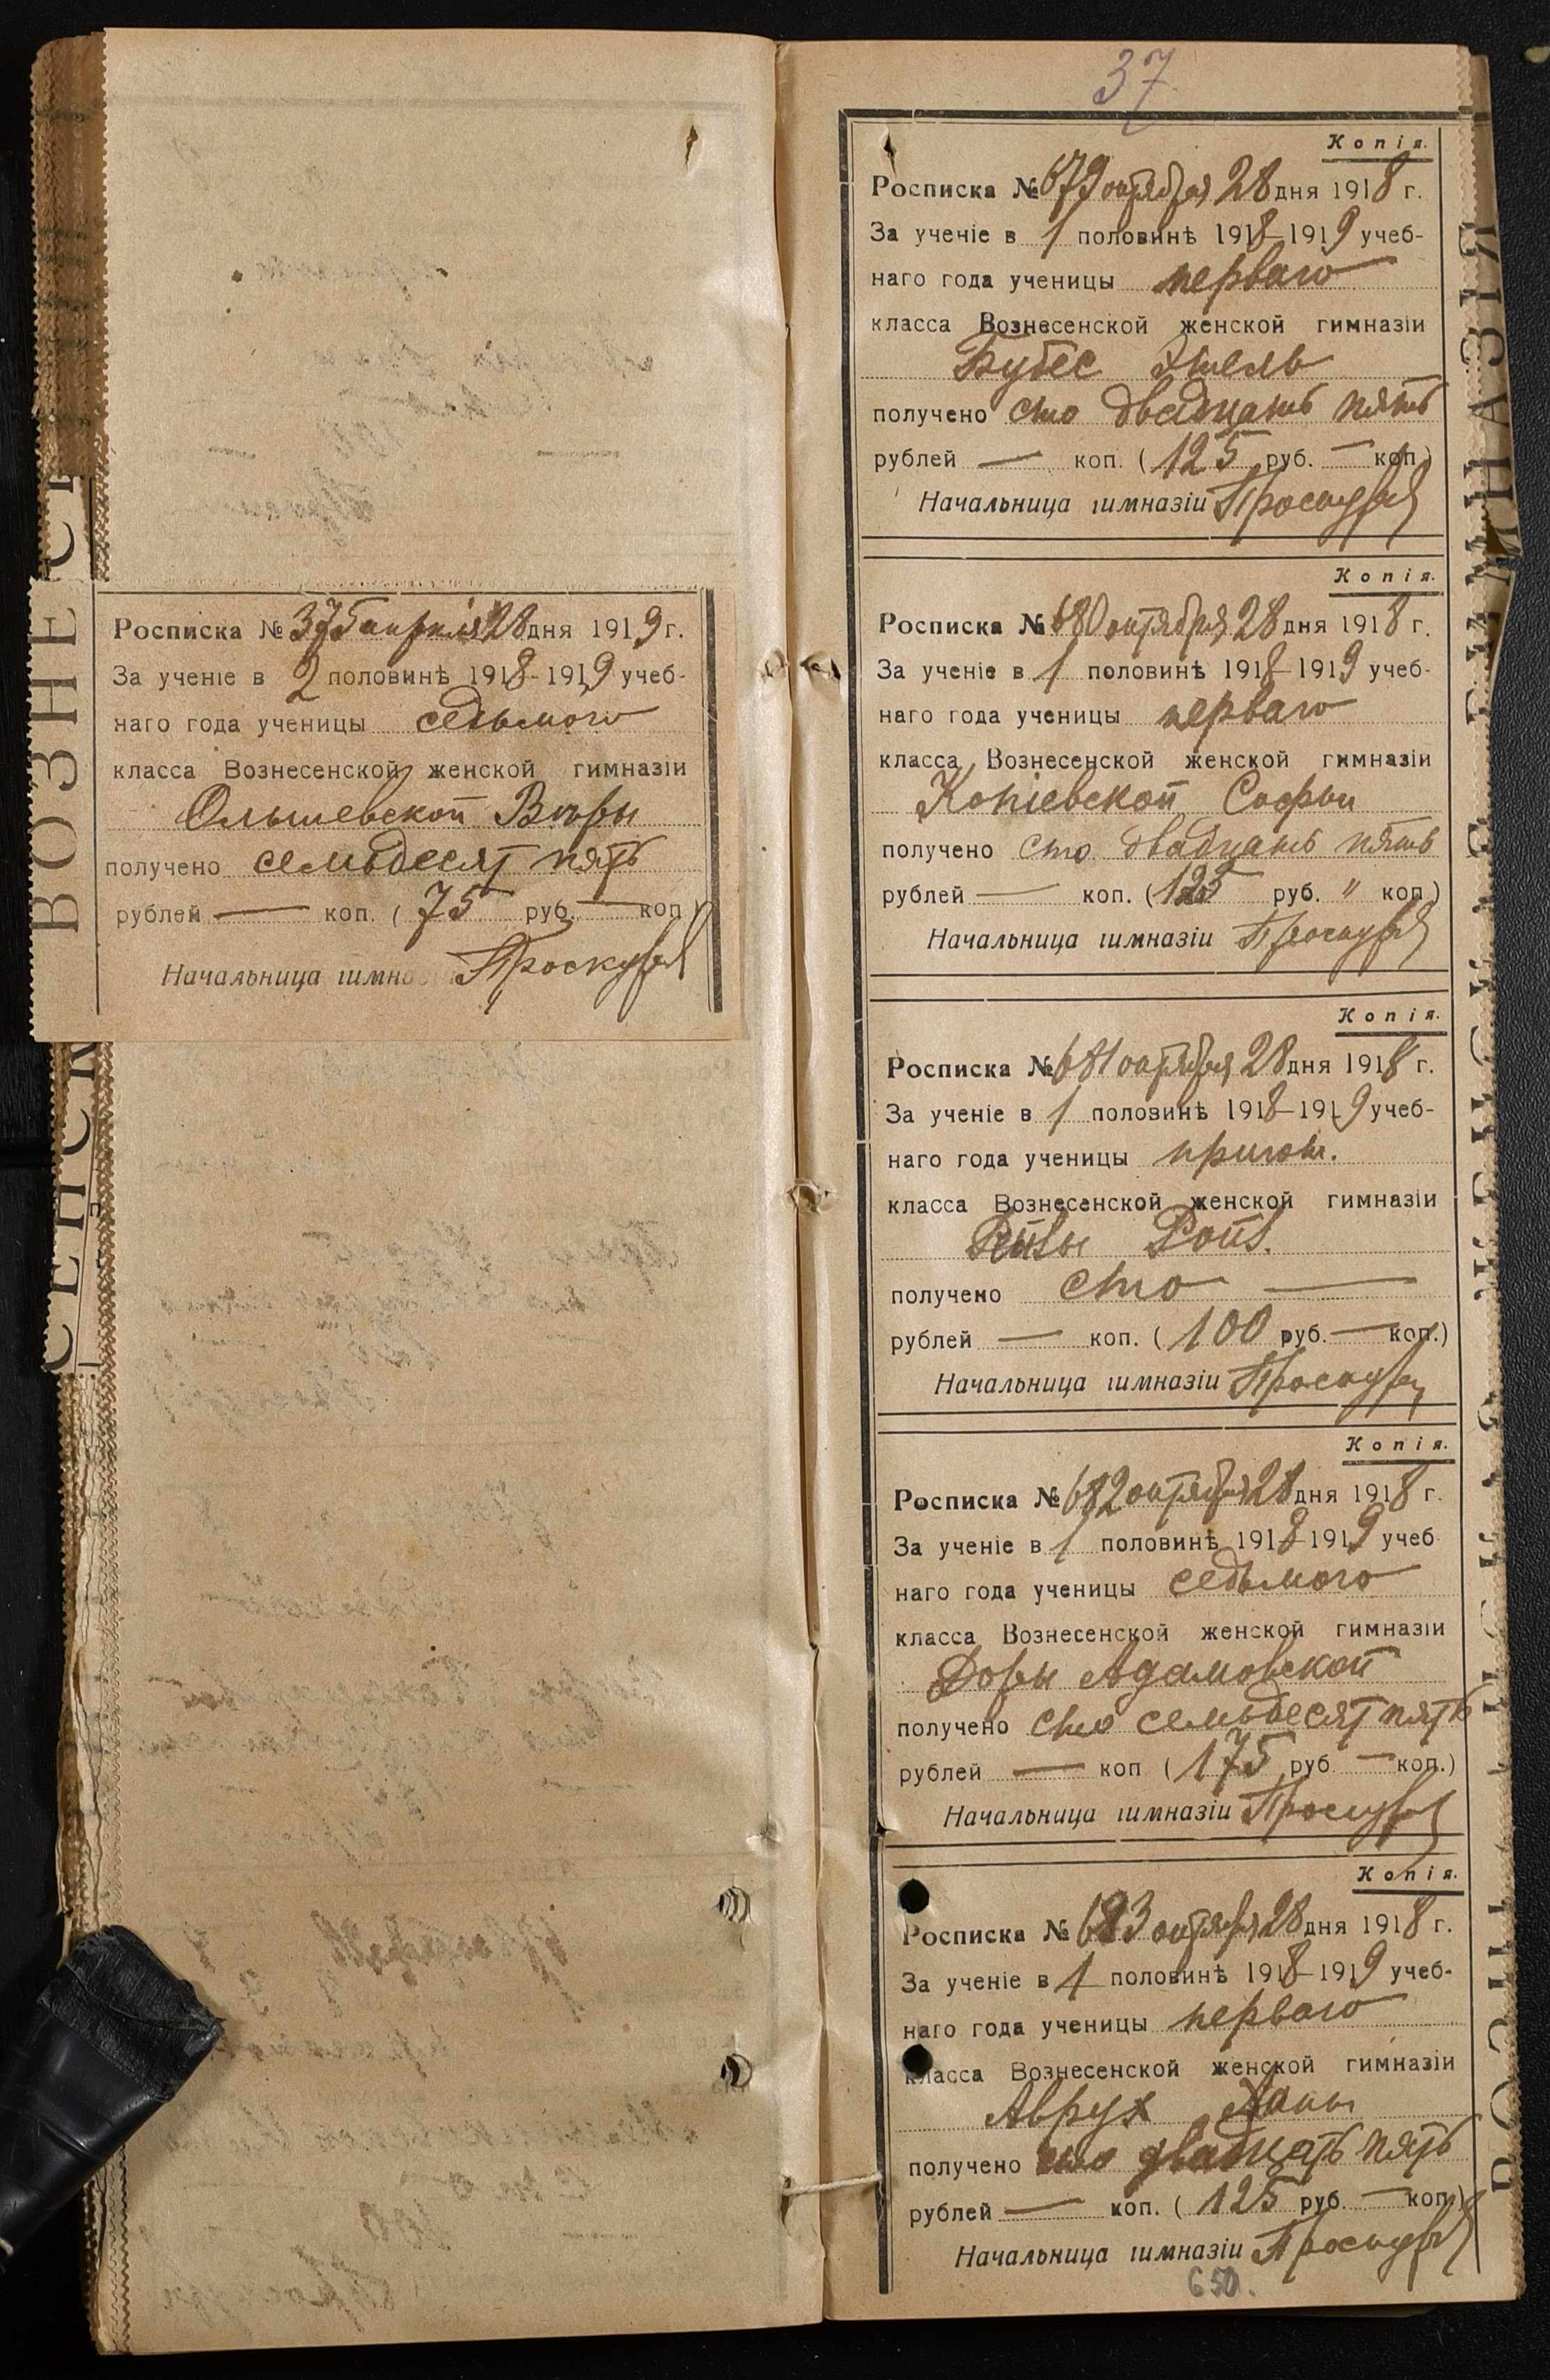 ВОЗНЕСЕНСК
Росписка № 375 апреля 28 дня 1919 г.
За ученіе в 2 половинѣ 1918-1919 учеб-
наго года ученицы седьмого
класса Вознесенской женской гимназіи
Ольшевской Вѣры
получено семьдесят пять
рублей — коп. (75 руб. — коп.)
Начальница гимна Проскур
37
Копія.
Росписка № 679 октября 28 дня 1918 г.
За ученіе в 1 половинѣ 1918-1919 учеб-
наго года ученицы перваго
класса Вознесенской женской гимназіи
Бубес Этель
получено сто двадцать пять
рублей — коп. (125 руб. — коп.)
Начальница гимназіи Проскур
Копія.
Росписка № 680 октября 28 дня 1918 г.
За ученіе в 1 половинѣ 1918-1919 учеб-
наго года ученицы перваго
класса Вознесенской женской гимназіи
Копіевской Софьи
получено сто двадцать пять
рублей — коп. (125 руб. " коп.)
Начальница гимназіи Проскур
Копія.
Росписка № 681 октября 28 дня 1918 г.
За ученіе в 1 половинѣ 1918-1919 учеб-
наго года ученицы пригот.
класса Вознесенской женской гимназіи
получено сто —
рублей — коп. (100 руб. — коп.)
Начальница гимназіи Проскур
Копія.
Росписка № 682 октября 28 дня 1918 г.
За ученіе в 1 половинѣ 1918-1919 учеб
наго года ученицы седьмого
класса Вознесенской женской гимназіи
Доры Адамовской
получено сто семьдесят пять
рублей — коп (175 руб — коп.)
Начальница гимназіи Проскур
Копія.
Росписка № 683 октября 28 дня 1918 г.
За ученіе в 1 половинѣ 1918-1919 учеб-
наго года ученицы перваго
класса Вознесенской женской гимназіи
Аврух Ханы
получено сто двадцать пять
рублей — коп. (125 руб. — коп.)
Начальница гимназіи Проскур
650.